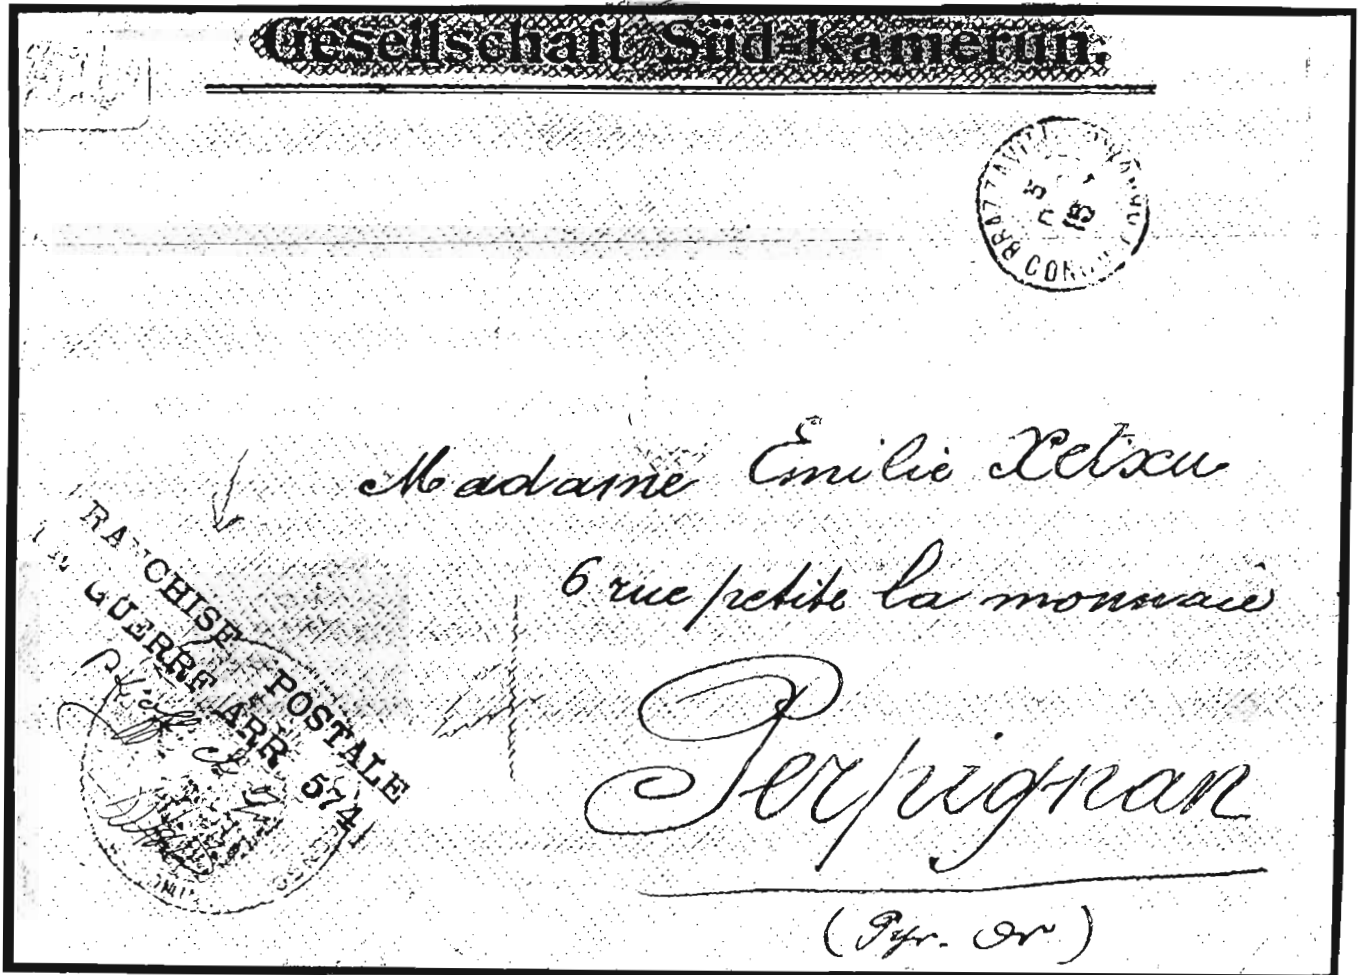 Gesellschaft Süd-Kamerun.
BRAZZAVILLE
CONGO
5
15
Madame Émilie Xetxu
6 rue petite la monnaie
Perpignan
(Pyr. Or)
RANCHISE POSTALE
GUERRE ARR 574